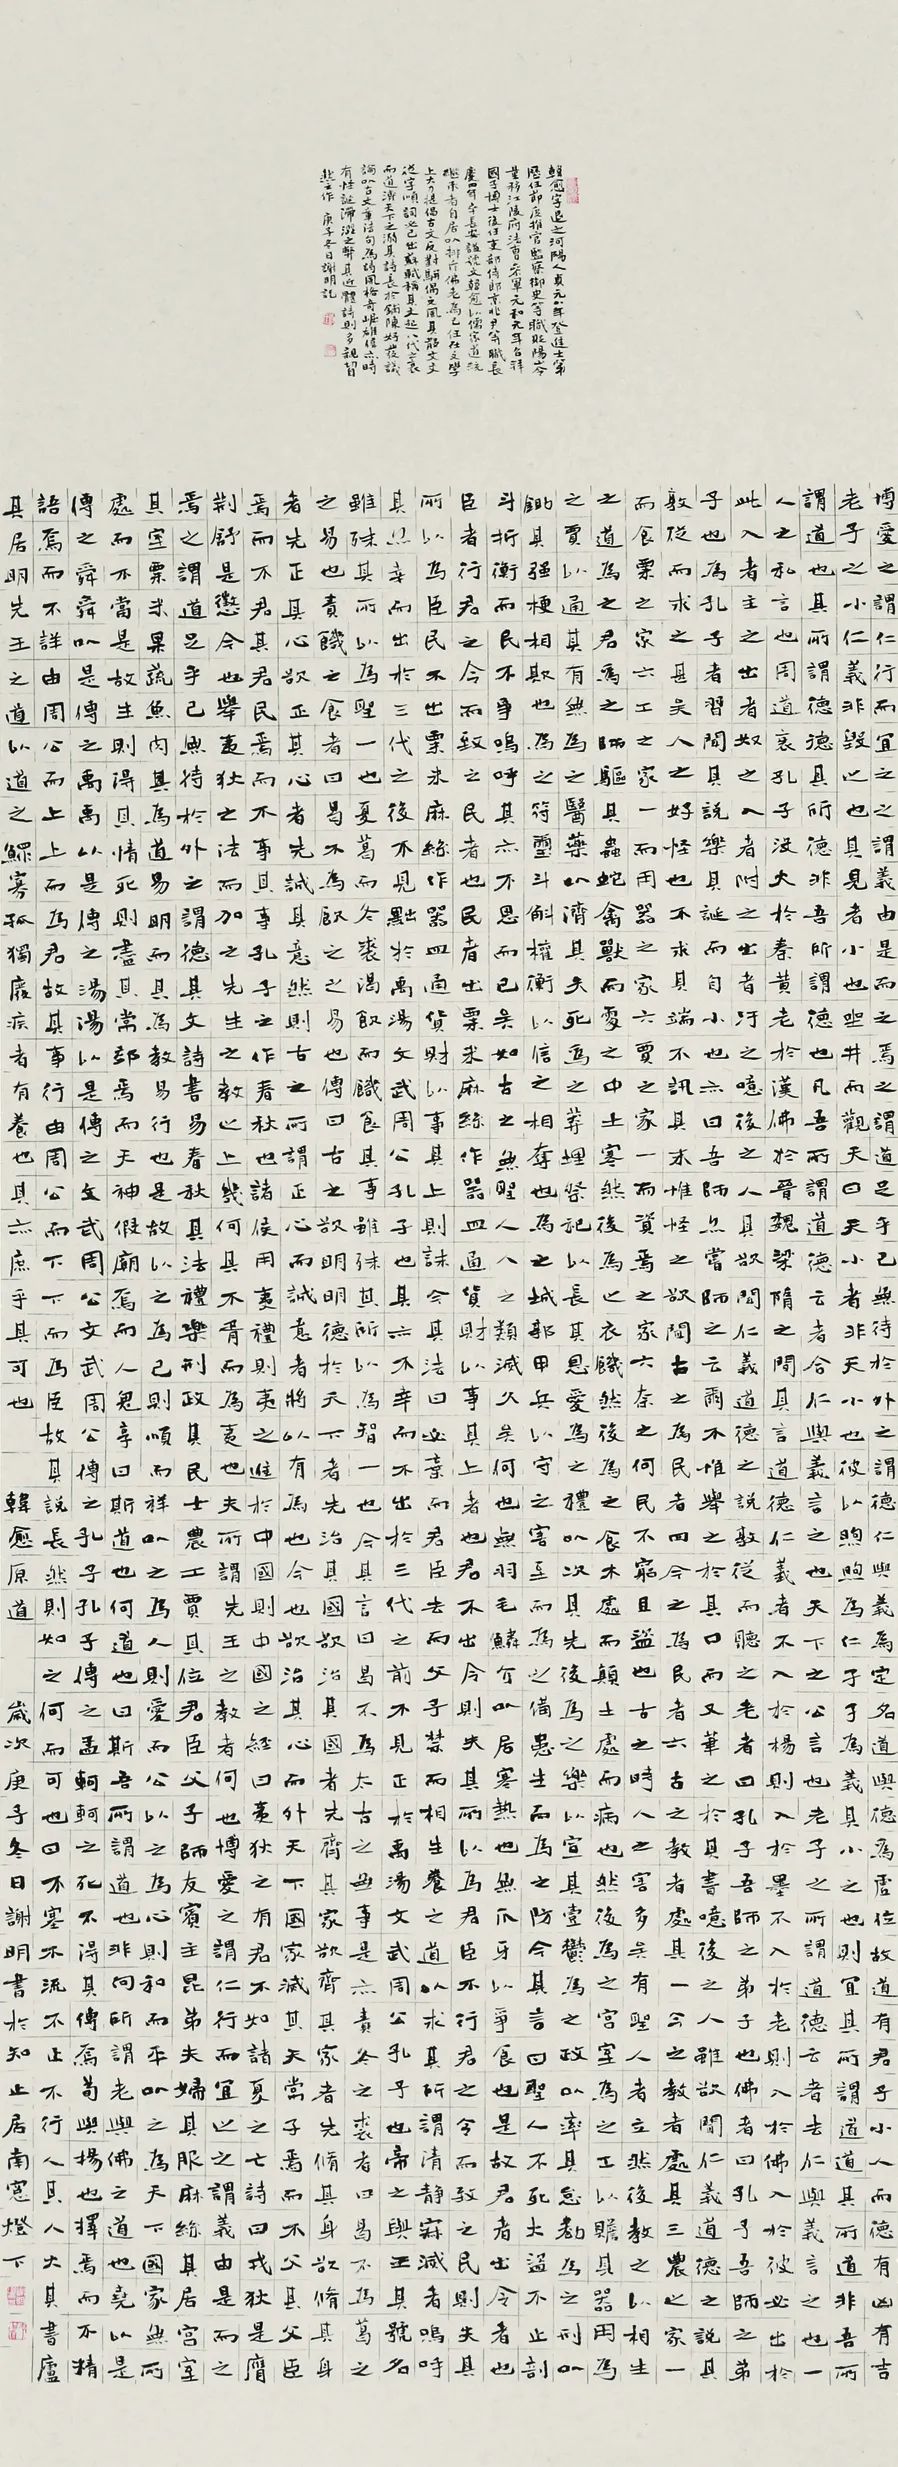 韓愈字退之河陽人貞元八年登進士第
歷任節度推官監察御史等職貶陽山令
量移江陵府法曹參軍元和元年召拜
國子博士後任吏部侍郎京兆尹等職長
慶四年卒長安謚號文韓愈以儒家道統
繼承者自居以排斥佛老為己任在文學
上大力提倡古文反對駢偶之風其散文文
從字順詞必己出蘇軾稱其文起八代之衰
而道濟天下之溺其詩長於鋪陳好發議
論以古文筆法句為詩風格奇崛雄偉亦時
有怪誕滯澀之弊其近體詩則多親切
悲之作 庚子冬日謝明記
博愛之謂仁行而宜之之謂義由是而之焉之謂道足乎己無待於外之謂德仁與義為定名道與德為虛位故道有君子小人而德有凶有吉
老子之小仁義非毀之也其見者小也坐井而觀天曰天小者非天小也彼以煦煦為仁孑孑為義其小之也則宜其所謂道道其所道非吾所
謂道也其所謂德德其所德非吾所謂德也凡吾所謂道德云者合仁與義言之也天下之公言也老子之所謂道德云者去仁與義言之也一
人之私言也周道衰孔子沒火於秦黃老於漢佛於晉魏梁隋之間其言道德仁義者不入於楊則入於墨不入於老則入於佛入於彼必出於
此入者主之出者奴之入者附之出者汙之噫後之人其欲聞仁義道德之說孰從而聽之老者曰孔子吾師之弟子也佛者曰孔子吾師之弟
子也為孔子者習聞其說樂其誕而自小也亦曰吾師亦嘗師之云爾不惟舉之於其口而又筆之於其書噫後之人雖欲聞仁義道德之說其
孰從而求之甚矣人之好怪也不求其端不訊其末惟怪之欲聞古之為民者四今之為民者六古之教者處其一今之教者處其三農之家一
而食粟之家六工之家一而用器之家六賈之家一而資焉之家六奈之何民不窮且盜也古之時人之害多矣有聖人者立然後教之以相生
之道為之君為之師驅其蟲蛇禽獸而處之中土寒然後為之衣饑然後為之食木處而顛土處而病也然後為之宮室為之工以贍其器用為
之賈以通其有無為之醫藥以濟其夭死為之葬埋祭祀以長其恩愛為之禮以次其先後為之樂以宣其壹鬱為之政以率其怠勌為之刑以
鋤其强梗相欺也為之符璽斗斛權衡以信之相奪也為之城郭甲兵以守之害至而為之備患生而為之防今其言曰聖人不死大盜不止剖
斗折衡而民不爭嗚呼其亦不思而已矣如古之無聖人人之類滅久矣何也無羽毛鱗介以居寒熱也無爪牙以爭食也是故君者出令者也
臣者行君之令而致之民者也民者出粟米麻絲作器皿通貨財以事其上者也君不出令則失其所以為君臣不行君之令而致之民則失其
所以為臣民不出粟米麻絲作器皿通貨財以事其上則誅今其法曰必棄而君臣去而父子禁而相生養之道以求其所謂清靜寂滅者嗚呼
其亦幸而出於三代之後不見黜於禹湯文武周公孔子也其亦不幸而不出於三代之前不見正於禹湯文武周公孔子也帝之與王其號名
雖殊其所以為聖一也夏葛而冬裘渴飲而饑食其事雖殊其所以為智一也今其言曰曷不為太古之無事是亦責冬之裘者曰曷不為葛之
之易也責饑之食者曰曷不為飲之之易也傳曰古之欲明明德於天下者先治其國欲治其國者先齊其家欲齊其家者先脩其身欲脩其身
者先正其心欲正其心者先誠其意然則古之所謂正心而誠意者將以有為也今也欲治其心而外天下國家滅其天常子焉而不父其父臣
焉而不君其君民焉而不事其事孔子之作春秋也諸侯用夷禮則夷之進於中國則中國之經曰夷狄之有君不如諸夏之亡詩曰戎狄是膺
荆舒是懲今也舉夷狄之法而加之先生之教之上幾何其不胥而為夷也夫所謂先王之教者何也博愛之謂仁行而宜之之謂義由是而之
焉之謂道足乎己無待於外之謂德其文詩書易春秋其法禮樂刑政其民士農工賈其位君臣父子師友賓主昆弟夫婦其服麻絲其居宮室
其室粟米果蔬魚肉其為道易明而其為教易行也是故以之為己則順而祥以之為人則愛而公以之為心則和而平以之為天下國家無所
處而不當是故生則得其情死則盡其常郊焉而天神假廟焉而人鬼享曰斯道也何道也曰斯吾所謂道也非向所謂老與佛之道也堯以是
傳之舜舜以是傳之禹禹以是傳之湯湯以是傳之文武周公文武周公傳之孔子孔子傳之孟軻軻之死不得其傳焉荀與揚也擇焉而不精
語焉而不詳由周公而上上而為君故其事行由周公而下下而為臣故其說長然則如之何而可也曰不塞不流不止不行人其人火其書廬
其居明先王之道以道之鰥寡孤獨廢疾者有養也其亦庶乎其可也 韓愈原道 歲次庚子冬日謝明書於知止居南窗燈下